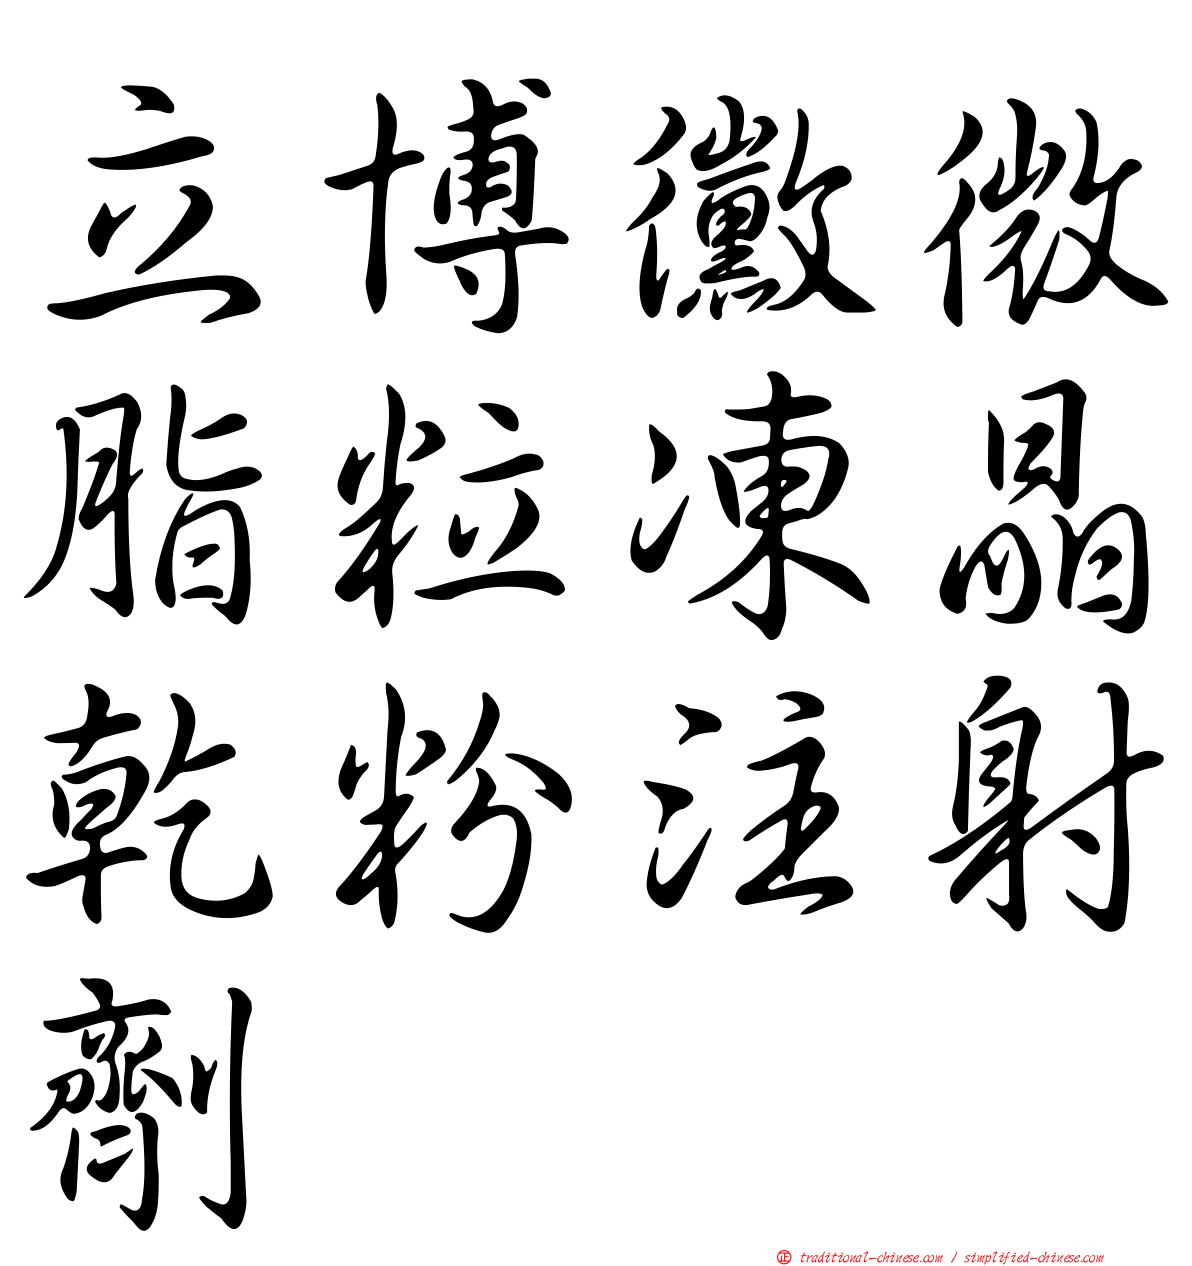 立博黴微
脂粒凍晶
乾粉注射
劑
正 traditional-chinese.com / simplified-chinese.com